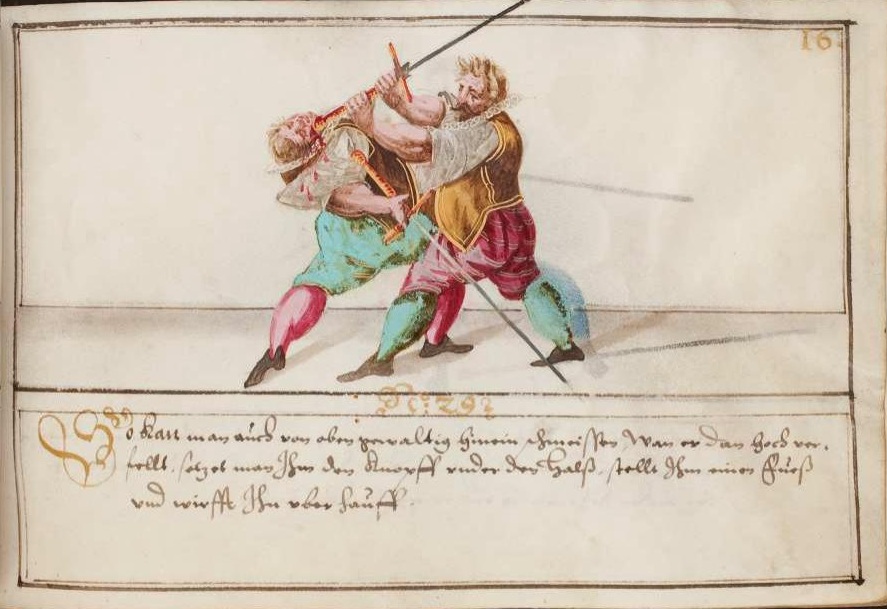 16
No: 29
So kan man auch von oben gewaltig hinein schmeissen, Wan er dan hoch ver,
fellt, setzet man Ihm den Knopff vnder den Halß, stellt Ihm einen Fueß
vnd wirfft Ihn vber hauff.